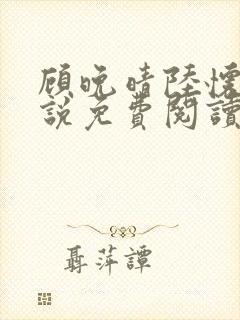 顾晚晴陸懷
說免費閱讀
聶萍譚